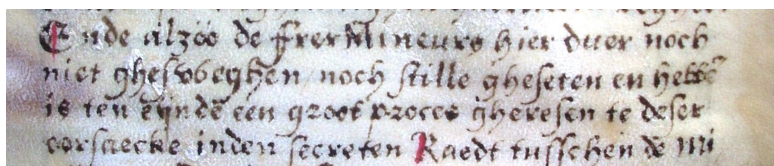 Ende alzoo de frermineurs hier over noch
niet ghesweghen noch stille gheseten en hebbē
is ten eynde een groot proces gheresen te deser
oorsaecke inden secreten Raedt tusschen de mi